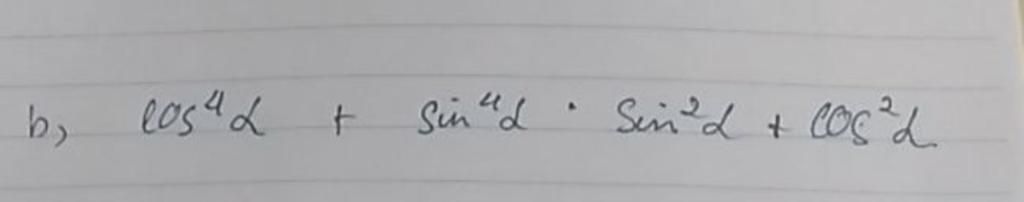 b, cos⁴α + sin⁴α · sin²α + cos²α